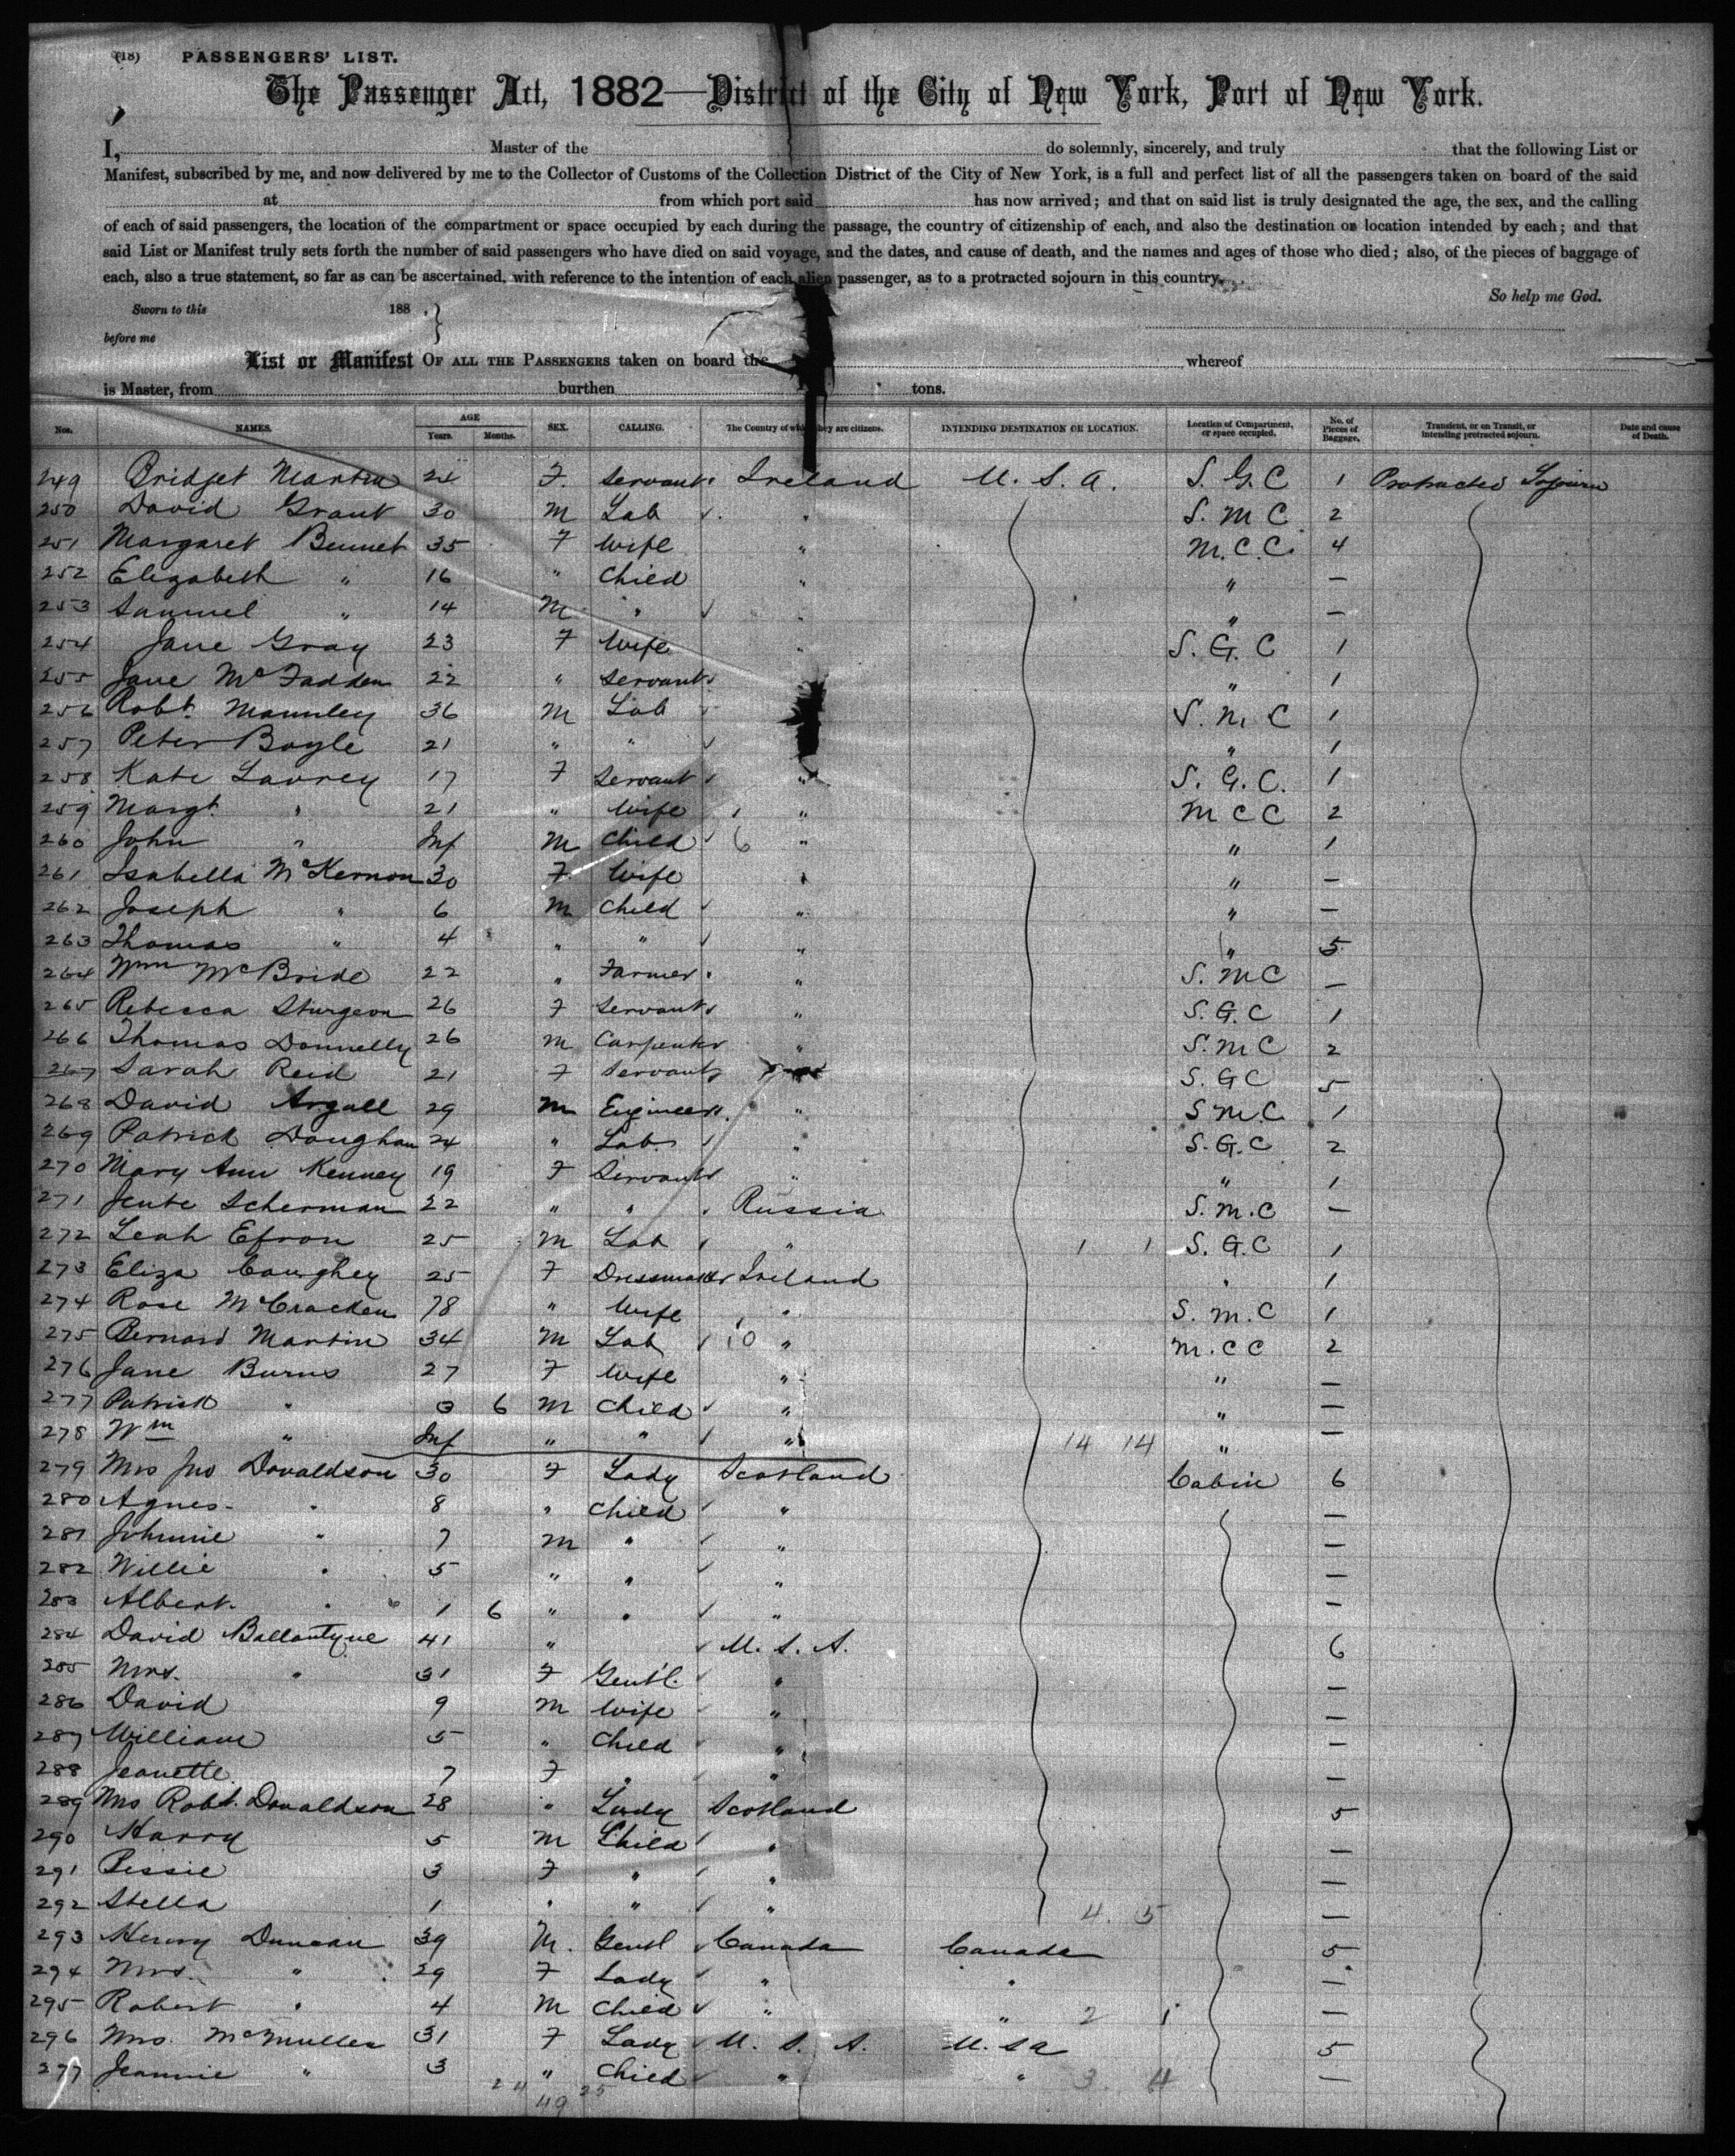 (18) PASSENGERS' LIST.
The Passenger Act, 1882—District of the City of New York, Port of New York.
I, Master of the do solemnly, sincerely, and truly that the following List or
Manifest, subscribed by me, and now delivered by me to the Collector of Customs of the Collection District of the City of New York, is a full and perfect list of all the passengers taken on board of the said
at from which port said has now arrived; and that on said list is truly designated the age, the sex, and the calling
of each of said passengers, the location of the compartment or space occupied by each during the passage, the country of citizenship of each, and also the destination or location intended by each; and that
said List or Manifest truly sets forth the number of said passengers who have died on said voyage, and the dates, and cause of death, and the names and ages of those who died; also, of the pieces of baggage of
each, also a true statement, so far as can be ascertained, with reference to the intention of each alien passenger, as to a protracted sojourn in this country.
So help me God.
Sworn to this 188 .
before me
List or Manifest OF ALL THE PASSENGERS taken on board the whereof
is Master, from burthen tons.
Nos. NAMES. AGE Years. Months. SEX. CALLING. The Country of which they are citizens. INTENDING DESTINATION OR LOCATION. Location of Compartment, or space occupied. No. of Pieces of Baggage. Transient, or on Transit, or intending protracted sojourn. Date and cause of Death.
249 Bridget Martin 24 F. Servant Ireland U. S. A. S. G. C 1 Protracted Sojourn
250 David Grant 30 M Lab " S. M C 2
251 Margaret Bennet 35 F Wife " M. C. C. 4
252 Elizabeth " 16 " Child " " —
253 Samuel " 14 M " " " —
254 Jane Gray 23 F Wife " S. G. C 1
255 Jane McFadden 22 " Servant " 1
256 Robt. Mannley 36 M Lab S. M. C 1
257 Peter Boyle 21 " " " 1
258 Kate Lavrey 17 F Servant " S. G. C. 1
259 Margt. " 21 " Wife " M C C 2
260 John " Inf M Child 6 " " 1
261 Isabella McKernon 30 F. Wife " " —
262 Joseph " 6 M Child " " —
263 Thomas " 4 " " " " 5
264 Wm McBride 22 " Farmer " S. M C —
265 Rebecca Sturgeon 26 F Servant " S. G. C 1
266 Thomas Donnelly 26 M Carpenter " S. M C 2
267 Sarah Reid 21 F Servant S. G C 5
268 David Argall 29 M Engineer " S M. C. 1
269 Patrick Doughan 24 " Lab. " S. G. C 2
270 Mary Ann Kenney 19 F Servant " " 1
271 Jente Scherman 22 " " Russia S. M. C —
272 Leah Efron 25 M Lab " 1 1 S. G. C 1
273 Eliza Caughey 25 F Dressmaker Ireland " 1
274 Rose McCracken 78 " Wife " S. M. C 1
275 Bernard Martin 34 M Lab 10 " M. C C 2
276 Jane Burns 27 F Wife " " —
277 Patrick " 3 6 M Child " " —
278 Wm " Inf " " " 14 14 " —
279 Mrs Jno Donaldson 30 F Lady Scotland Cabin 6
280 Agnes " 8 " Child " —
281 Johnnie " 7 M " " —
282 Willie " 5 " " " —
283 Albert " 1 6 " " " —
284 David Ballantyne 41 " U. S. A. 6
285 Mrs. " 31 F Gentl. " —
286 David 9 M Wife " —
287 William 5 " Child " —
288 Jeanette 7 F " " —
289 Mrs Robt. Donaldson 28 " Lady Scotland 5
290 Harry 5 M Child " —
291 Bessie 3 F " " —
292 Stella 1 " " " 4. 5 —
293 Henry Duncan 39 M. Gentl Canada Canada 5
294 Mrs. " 29 F Lady " " —
295 Robert " 4 M Child " " 2 1 —
296 Mrs. McMullen 31 F Lady U. S. A. U. S A 5
297 Jeannie " 3 " Child " " 3. 4 —
24 25
49